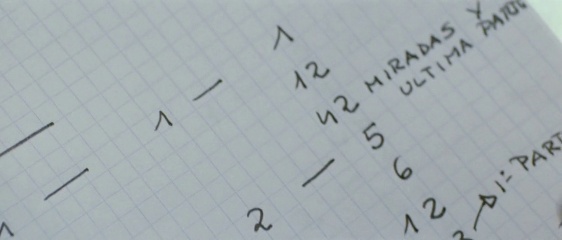 1
1 — 12
42 MIRADAS Y
ULTIMA PARTE
5
2 — 6
12
1ª PART